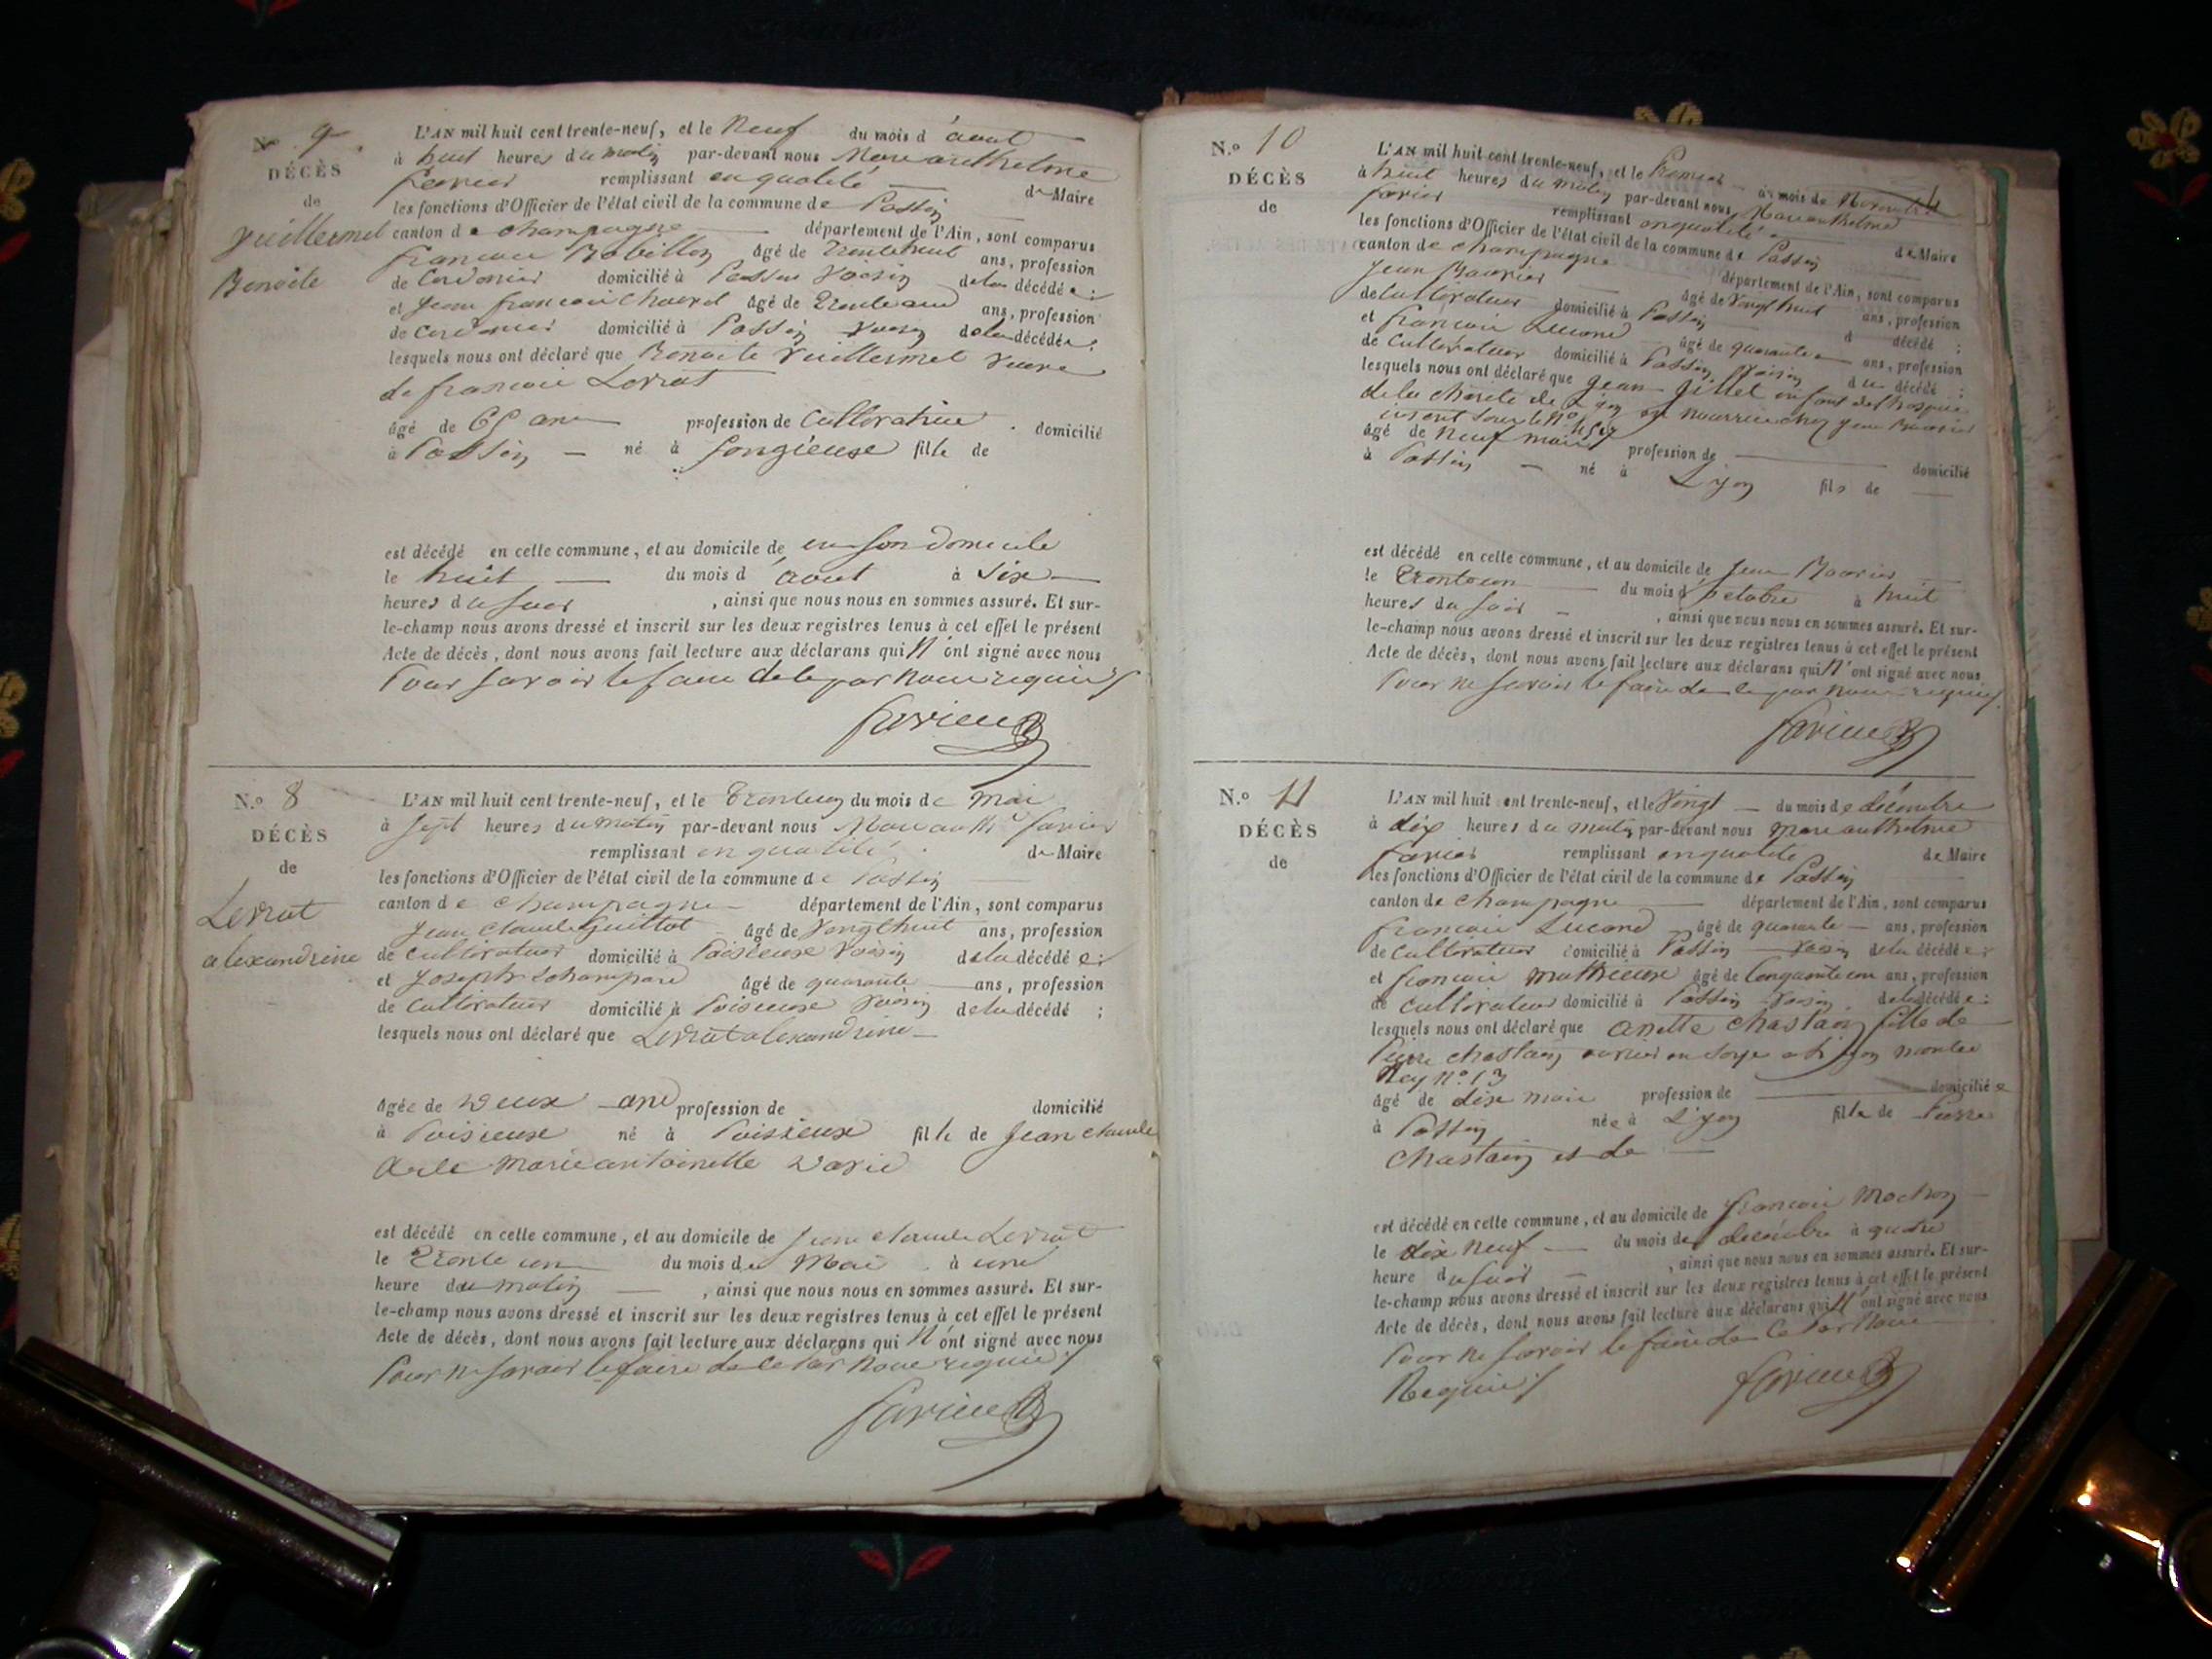 N.o 9
DÉCÈS
de
Vuillermel
Benoite
L'AN mil huit cent trente-neuf, et le Neuf du mois d'aout
à huit heures du matin par-devant nous Marc anthelme
favier remplissant en qualité de Maire
les fonctions d'Officier de l'état civil de la commune de Passin
canton de champagne département de l'Ain, sont comparus
francois Robillon âgé de trente huit ans, profession
de Cordonier domicilié à Passin voisin de la décédée;
et Jean francois âgé de ans, profession
de Cordonier domicilié à Passin voisin de la décédée;
lesquels nous ont déclaré que Benoite Vuillermel veuve
de francois Levrat
âgé de ans profession de Cultivatrice domicilié
à Passin né à Songieuse fille de
est décédé en cette commune, et au domicile de en son domicile
le huit du mois d'aout à Six
heures du soir, ainsi que nous nous en sommes assuré. Et sur-
le-champ nous avons dressé et inscrit sur les deux registres tenus à cet effet le présent
Acte de décès, dont nous avons fait lecture aux déclarans qui N'ont signé avec nous
Pour savoir le faire de le par nous requis
favier
N.o 8
DÉCÈS
de
Levrat
alexandrine
L'AN mil huit cent trente-neuf, et le du mois de Mai
à Sept heures du matin par-devant nous Marc anthe favier
remplissant en qualité de Maire
les fonctions d'Officier de l'état civil de la commune de Passin
canton de champagne département de l'Ain, sont comparus
Jean Claude Guillot âgé de Vingt huit ans, profession
de Cultivateur domicilié à Poisieuse Voisin de la décédée;
et Joseph âgé de quarante ans, profession
de Cultivateur domicilié à Poisieuse Voisin de la décédé;
lesquels nous ont déclaré que Levrat alexandrine
âgée de Deux ans profession de domicilié
à Poisieuse né à Poisieuse fille de Jean Claude
de Marie antoinette
est décédé en cette commune, et au domicile de Jean Claude Levrat
le Trente un du mois de Mai à une
heure du matin, ainsi que nous nous en sommes assuré. Et sur-
le-champ nous avons dressé et inscrit sur les deux registres tenus à cet effet le présent
Acte de décès, dont nous avons fait lecture aux déclarans qui N'ont signé avec nous
Pour ne savoir le faire de ce Par Nous requis
favier
N.o 10
DÉCÈS
de
L'AN mil huit cent trente-neuf, et le Premier du mois de Novembre
à huit heures du matin par-devant nous Marc anthelme
favier remplissant en qualité de Maire
les fonctions d'Officier de l'état civil de la commune de Passin
canton de champagne département de l'Ain, sont comparus
Jean âgé de Vingt huit ans, profession
de Cultivateur domicilié à Passin d décédé;
et francois Lucand âgé de quarante ans, profession
de Cultivateur domicilié à Passin Voisin du décédé;
lesquels nous ont déclaré que Jean Gillet enfant de l'hospice
de la charité de Lyon
en nourrice chez Jean
âgé de neuf mois profession de domicilié
à Passin né à Lyon fils de
est décédé en cette commune, et au domicile de Jean
le Trente un du mois d'octobre à huit
heures du soir, ainsi que nous nous en sommes assuré. Et sur-
le-champ nous avons dressé et inscrit sur les deux registres tenus à cet effet le présent
Acte de décès, dont nous avons fait lecture aux déclarans qui N'ont signé avec nous
Pour ne savoir le faire de ce par nous requis
favier
N.o 11
DÉCÈS
de
L'AN mil huit cent trente-neuf, et le Vingt du mois de décembre
à dix heures du matin par-devant nous Marc anthelme
favier remplissant en qualité de Maire
les fonctions d'Officier de l'état civil de la commune de Passin
canton de champagne département de l'Ain, sont comparus
francois Lucand âgé de quarante ans, profession
de Cultivateur domicilié à Passin voisin de la décédée;
et francois Mathieuse âgé de Cinquante un ans, profession
de Cultivateur domicilié à Passin voisin de la décédée;
lesquels nous ont déclaré que anette Chastain fille de
Pierre Chastain ouvrier en soye a Lyon montée
Rey No. 13
âgé de dix mois profession de domiciliée
à Passin née à Lyon fille de Pierre
Chastain et de
est décédé en cette commune, et au domicile de francois Mochon
le dix Neuf du mois de décembre à quatre
heure du soir, ainsi que nous nous en sommes assuré. Et sur-
le-champ nous avons dressé et inscrit sur les deux registres tenus à cet effet le présent
Acte de décès, dont nous avons fait lecture aux déclarans qui N'ont signé avec nous
Pour ne savoir le faire de ce Par Nous
Requis
favier